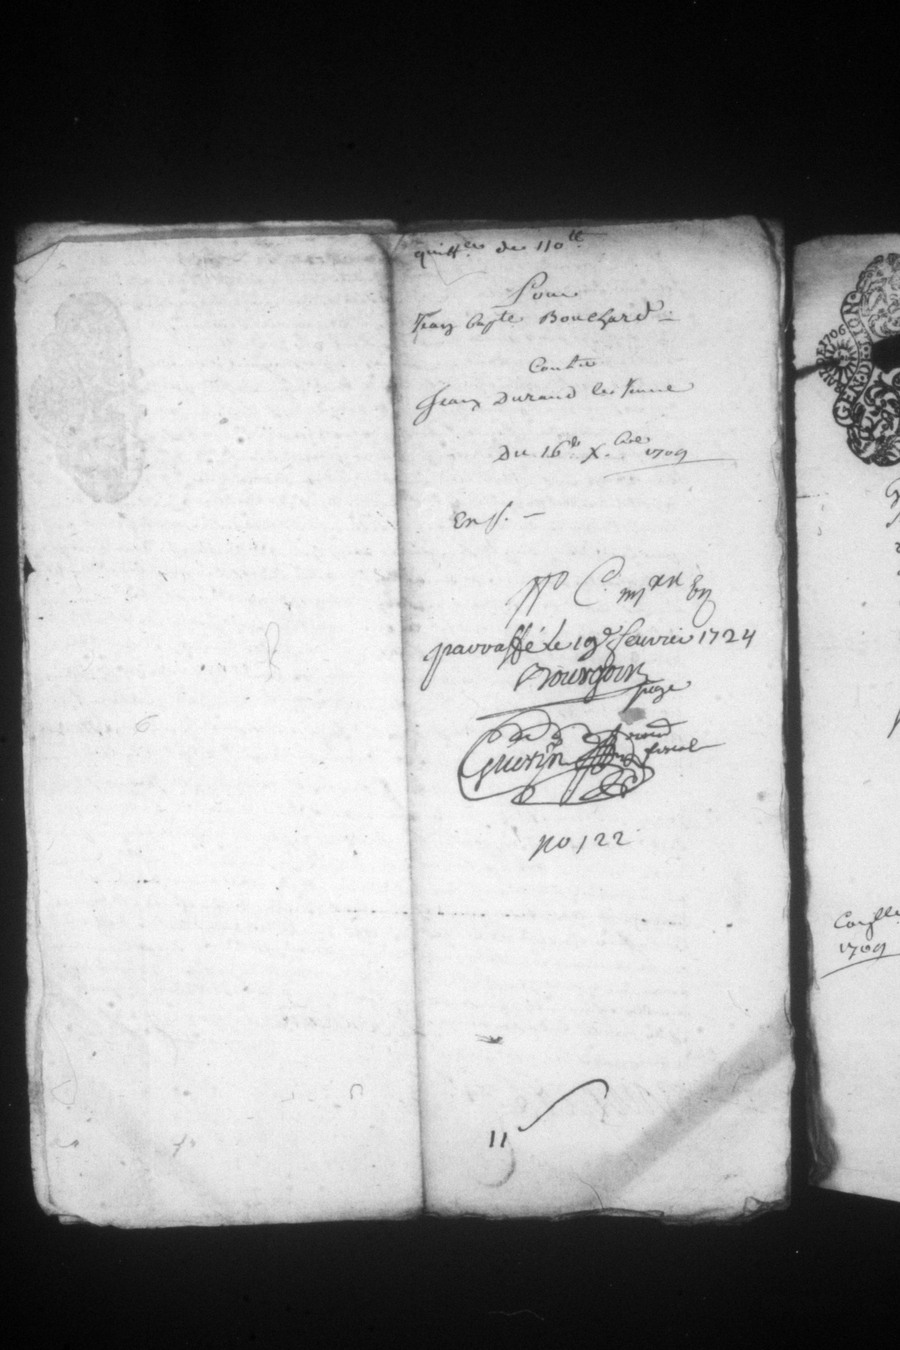 quitt.ce de 110tt
Pour
Jean bapte Bouchard
Contre
Jean Durand le Jeune
Du 16e Xbre 1709
Ens. -
parraffé le 19e feuvrier 1724
Bourgoin
juge
Guerin
fiscal
no 122
11
GEN·D·LYON
1706
1709